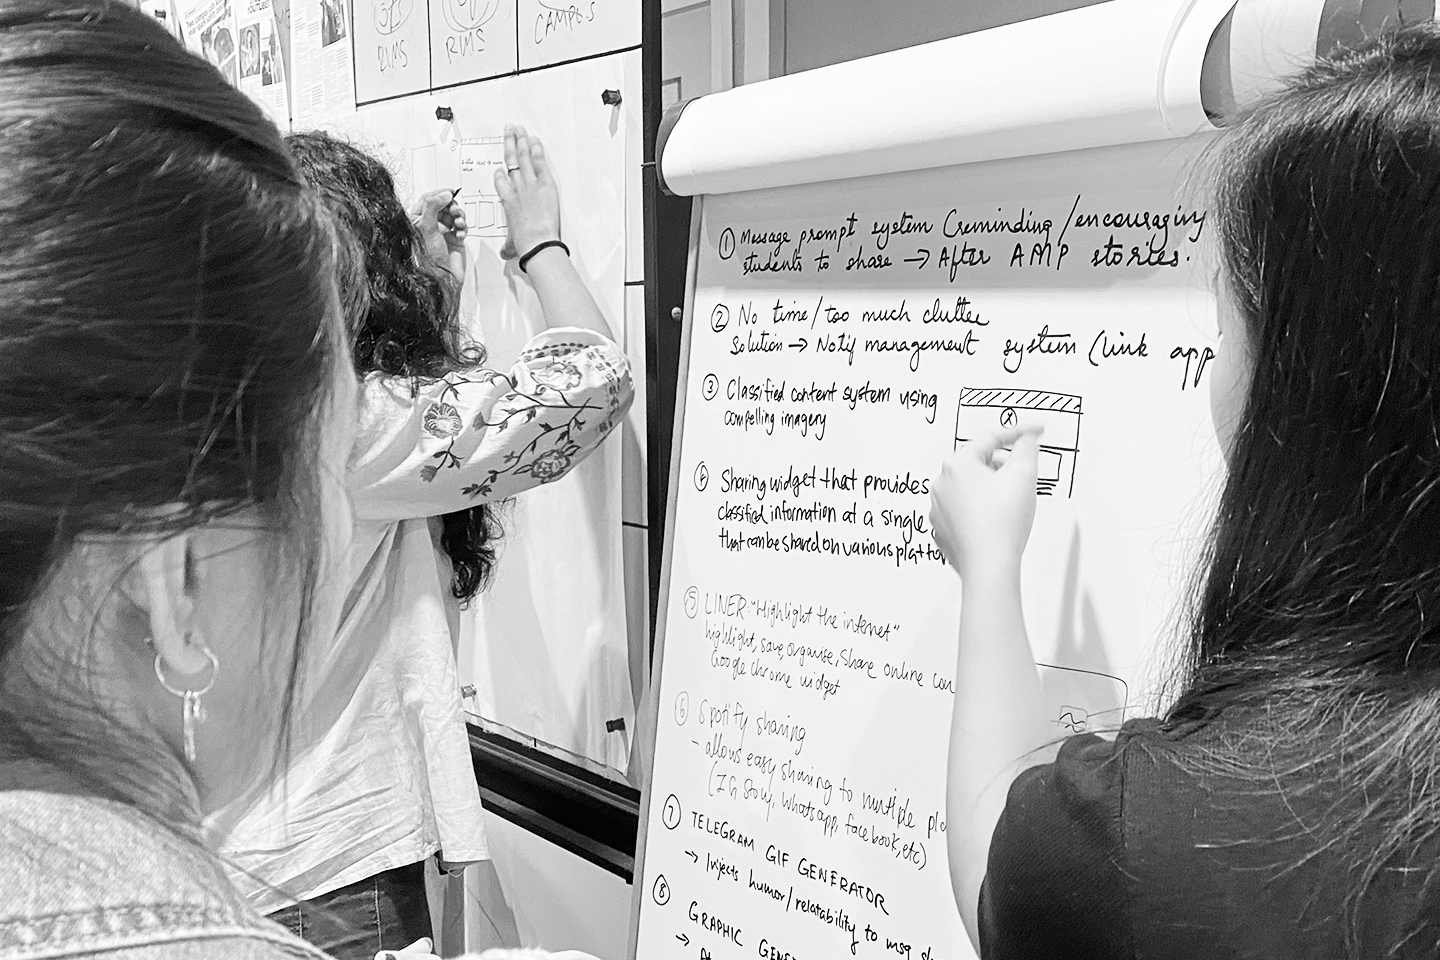 RIMS
RIMS
CAMPUS
① Message prompt system (reminding/encouraging
students to share → After AMP stories.
② No time/too much clutter
Solution → Notif management system (link app
③ Classified content system using
compelling imagery
Sharing widget that provides
classified information at a single
that can be shared on various platfor
⑤ LINER: "Highlight the internet"
highlight, save, organise, share online con
Google chrome widget
⑥ Spotify sharing
- allows easy sharing to multiple pla
(IG Story, whatsapp, facebook, etc)
⑦ TELEGRAM GIF GENERATOR
→ Injects humor/relatability to msg
⑧ GRAPHIC GENE
→